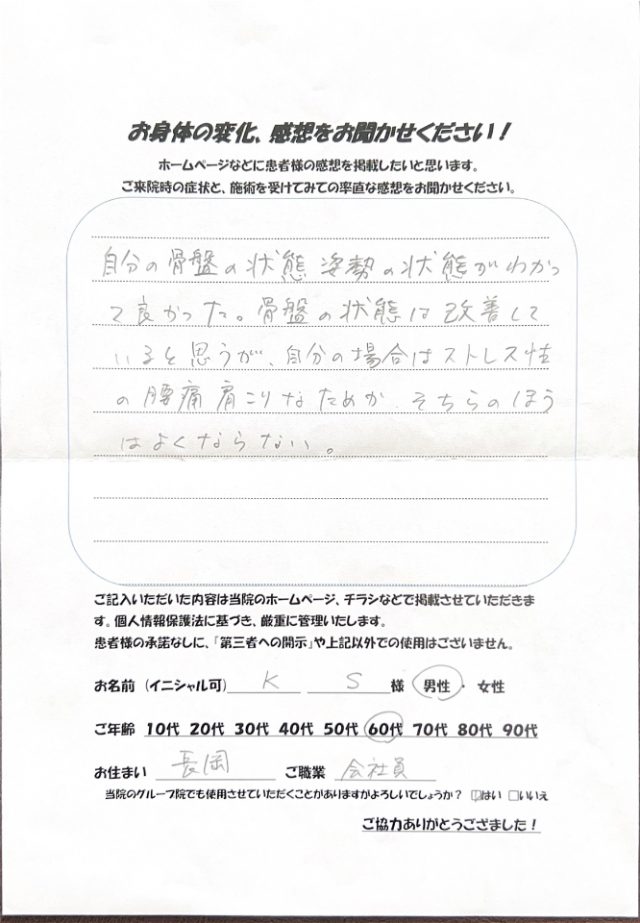 お身体の変化、感想をお聞かせください！
ホームページなどに患者様の感想を掲載したいと思います。
ご来院時の症状と、施術を受けてみての率直な感想をお聞かせください。
自分の骨盤の状態 姿勢の状態がわかっ
て良かった。骨盤の状態は改善して
いると思うが、自分の場合はストレス性
の腰痛肩こりなためか、そちらのほう
はよくならない。
ご記入いただいた内容は当院のホームページ、チラシなどで掲載させていただきま
す。個人情報保護法に基づき、厳重に管理いたします。
患者様の承諾なしに、「第三者への開示」や上記以外での使用はございません。
お名前（イニシャル可） K S 様 男性・女性
ご年齢 10代 20代 30代 40代 50代 60代 70代 80代 90代
お住まい 長岡 ご職業 会社員
当院のグループ院でも使用させていただくことがありますがよろしいでしょうか？ ☑はい □いいえ
ご協力ありがとうござました！